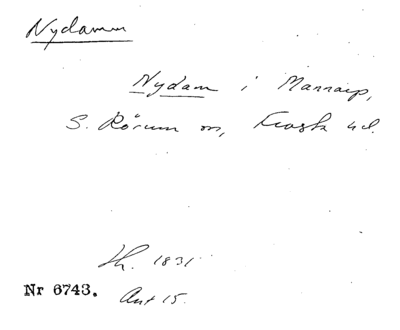 Nydamm
Nydam i Mannarp,
S. Rörum sn, Frosta hd.
Th. 1831
Nr 6743. Ant 15.